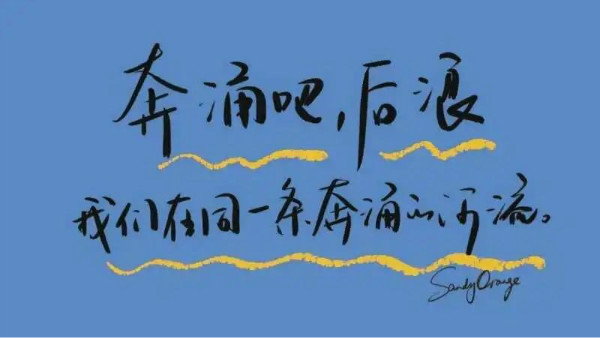 奔涌吧,后浪
我们在同一条奔涌的河流。
Sandy Orange